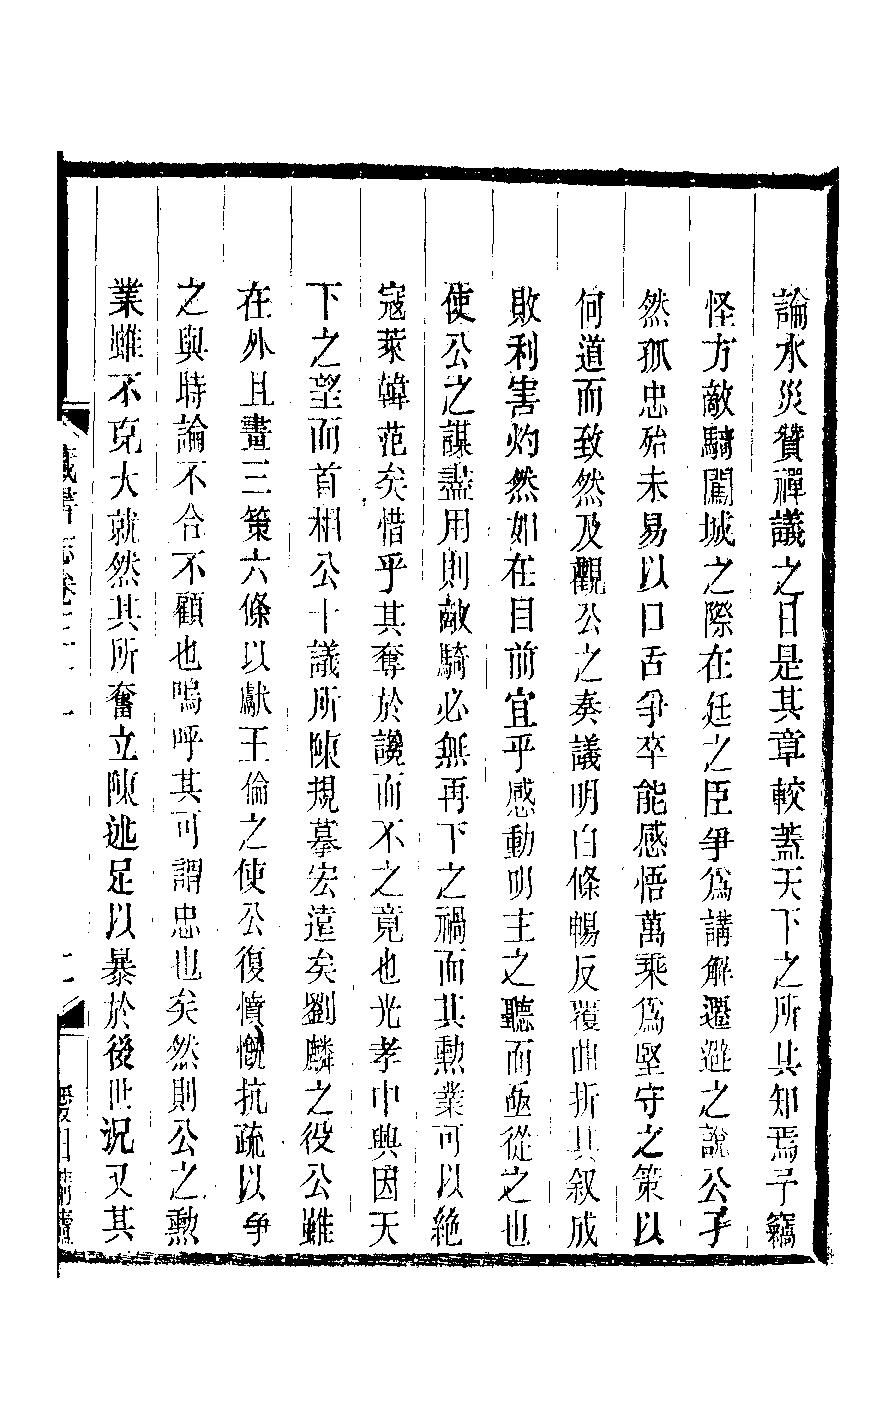 論水災贊禪議之日是其章較蓋天下之所共知焉予竊
怪方敵騎闖城之際在廷之臣爭爲講解遷避之說公孑
然孤忠殆未易以口舌爭卒能感悟萬乘爲堅守之策以
何道而致然及觀公之奏議明白條暢反覆曲折其叙成
敗利害灼然如在目前宜乎感動明主之聽而亟從之也
使公之謀盡用則敵騎必無再下之禍而其勳業可以絶
寇萊韓范矣惜乎其奪於讒而不之竟也光孝中興因天
下之望而首相公十議所陳規摹宏遠矣劉麟之役公雖
在外且畫三策六條以獻王倫之使公復憤慨抗疏以爭
之與時論不合不顧也嗚呼其可謂忠也矣然則公之勳
業雖不克大就然其所奮立陳述足以暴於後世況又其
藏書志卷